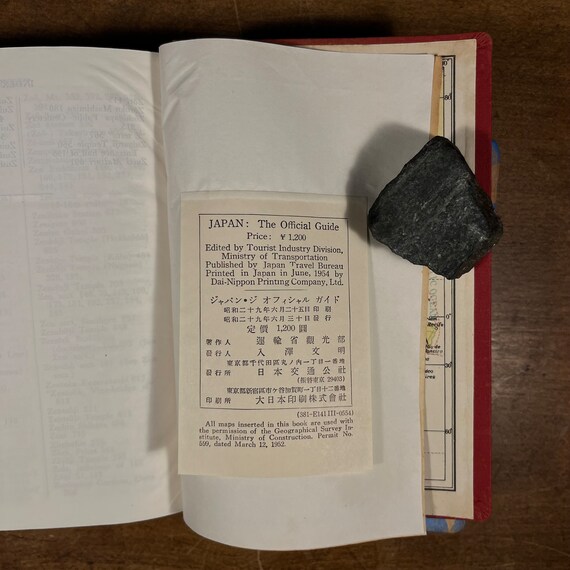 JAPAN: The Official Guide
Price: ¥ 1,200
Edited by Tourist Industry Division,
Ministry of Transportation
Published by Japan Travel Bureau
Printed in Japan in June, 1954 by
Dai-Nippon Printing Company, Ltd.
ジャパン・ジ オフィシャル ガイド
昭和二十九年六月二十五日 印刷
昭和二十九年六月三十日 発行
定價 1,200 圓
著作人 運輸省觀光部
発行人 入澤文明
東京都千代田區丸ノ内一丁目一番地
発行所 日本交通公社
(振替東京 29403)
東京都新宿區市ケ谷加賀町一丁目十二番地
印刷所 大日本印刷株式會社
(381-E141 III-0554)
All maps inserted in this book are used with
the permission of the Geographical Survey In-
stitute, Ministry of Construction. Permit No.
599, dated March 12, 1952.